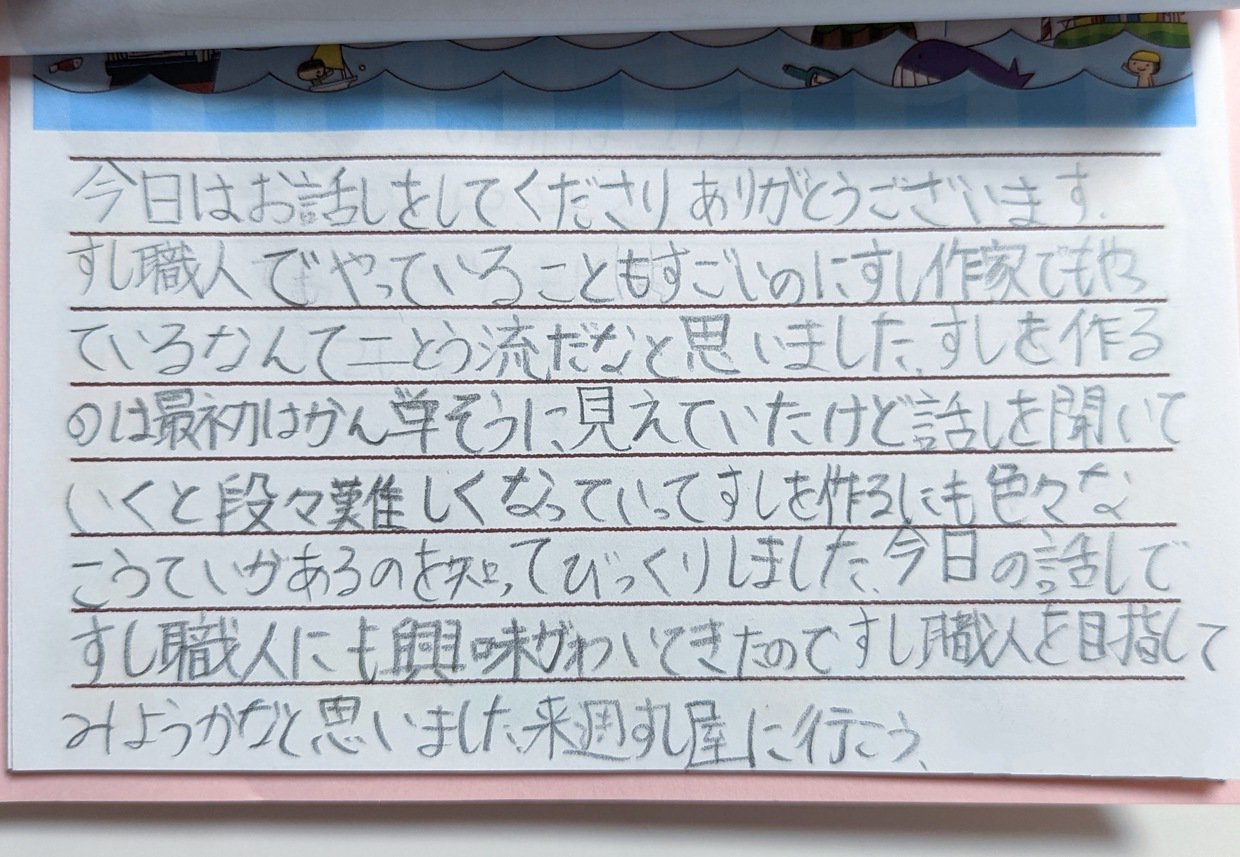 今日はお話しをしてくださりありがとうございます。
すし職人でやっていることもすごいのにすし作家でもやっ
ているなんて二とう流だなと思いました。すしを作る
のは最初はかん単そうに見えていたけど話しを聞いて
いくと段々難しくなっていってすしを作るしにも色々な
こうていがあるのを知ってびっくりしました。今日の話しで
すし職人にも興味がわいてきたのですし職人を目指して
みようかなと思いました。来週すし屋に行こう。